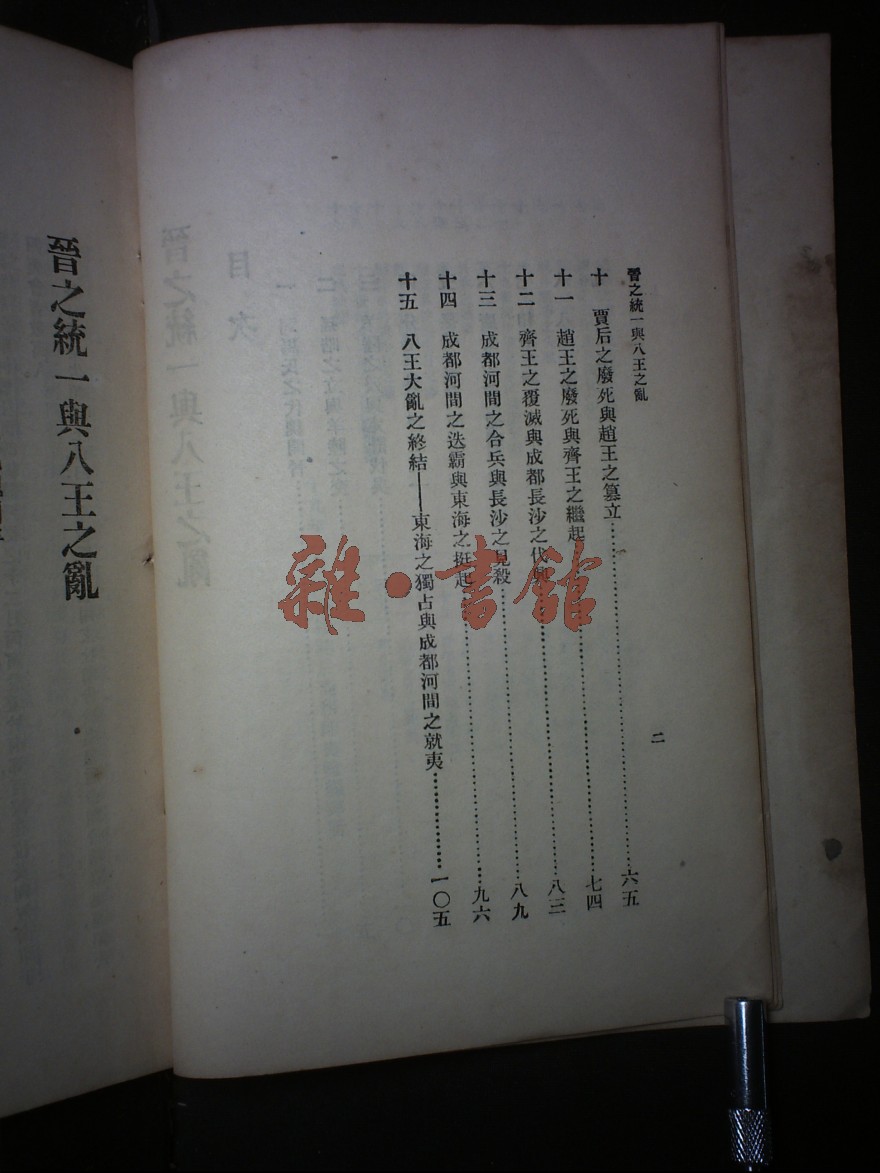 晉之統一與八王之亂
二
十 賈后之廢死與趙王之篡立……六五
十一 趙王之廢死與齊王之繼起……七四
十二 齊王之覆滅與成都長沙之代興……八三
十三 成都河間之合兵與長沙之見殺……八九
十四 成都河間之迭霸與東海之挺起……九六
十五 八王大亂之終結——東海之獨占與成都河間之就夷……一〇五
雜·書館
晉之統一與八王之亂